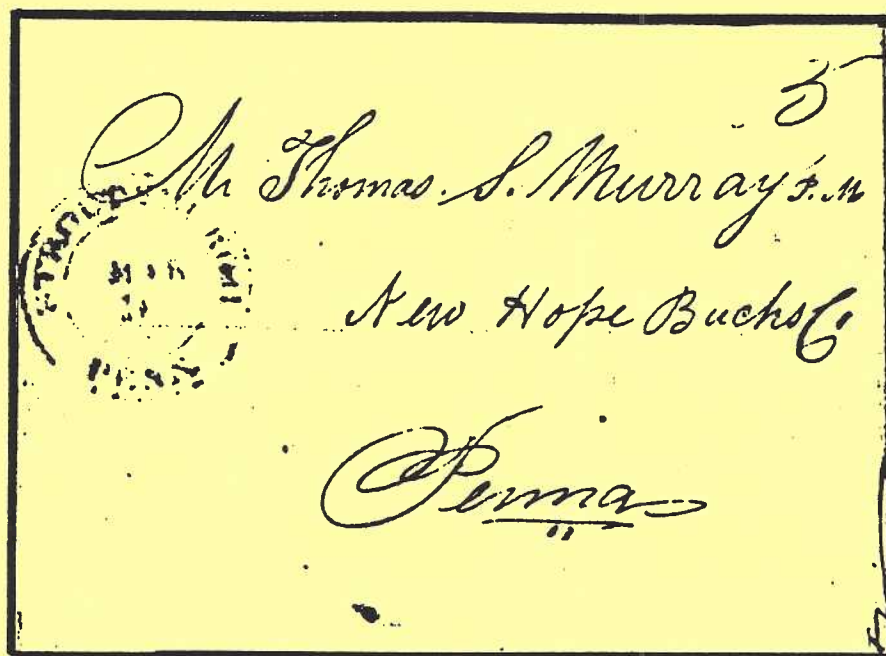 5
Mr Thomas. S. Murray P.M
New Hope Bucks Co
Penna